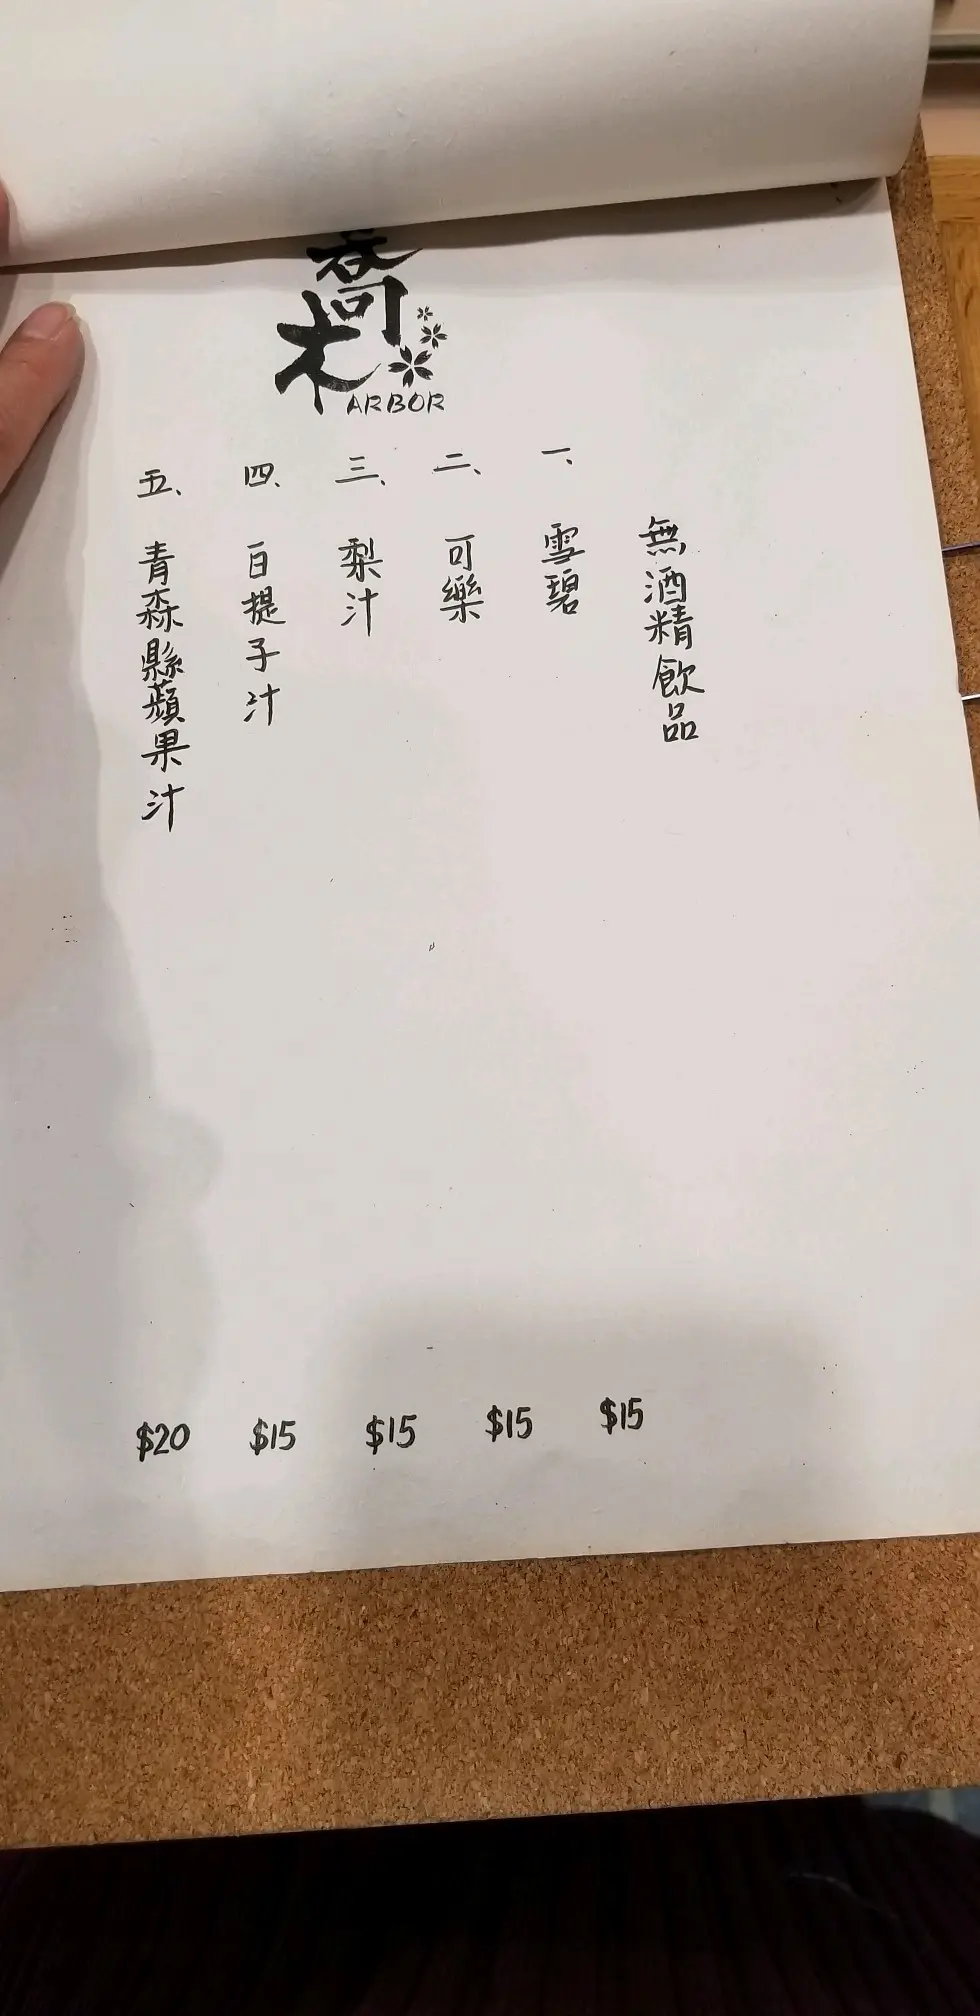 喬木
ARBOR
無酒精飲品
一、雪碧 $15
二、可樂 $15
三、梨汁 $15
四、白提子汁 $15
五、青森縣蘋果汁 $20